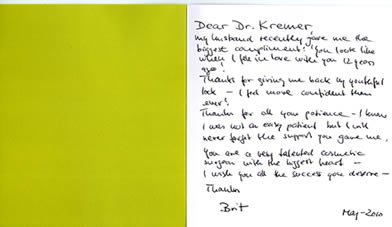 Dear Dr. Kremer
my husband recently gave me the
biggest compliment: "You look like
when I fell in love with you 12 years
ago!"
Thanks for giving me back my youthful
look – I feel more confident than
ever!
Thanks for all your patience – I know
I was not an easy patient but I will
never forget the support you gave me.
You are a very talented cosmetic
surgeon with the biggest heart –
I wish you all the success you deserve –
Thanks
Brit
May-2010